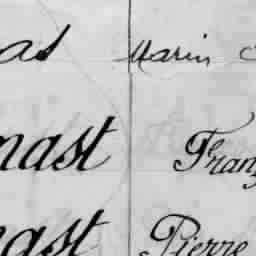 as Marin
nast Franç
nast Pierre